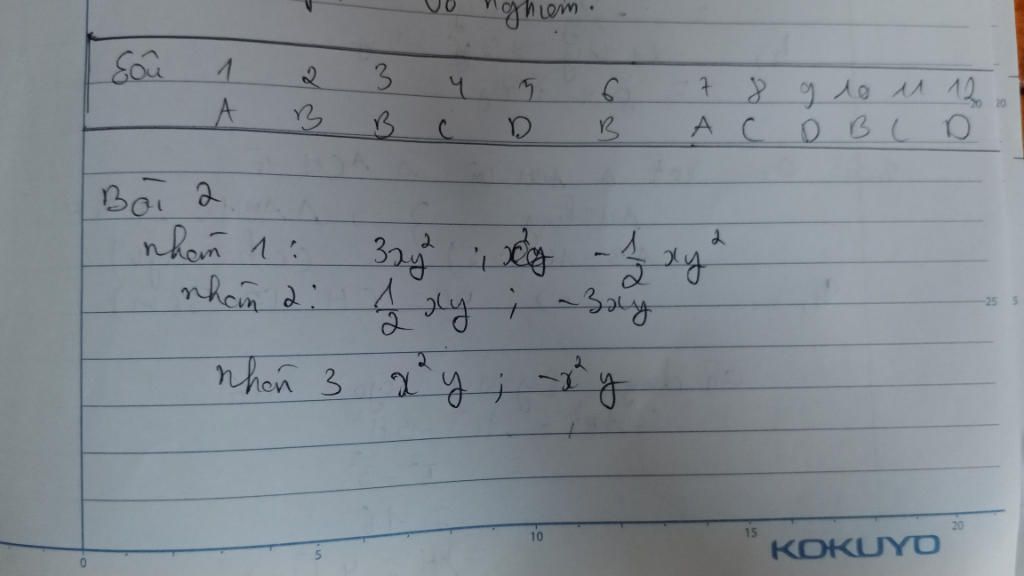 vô nghiệm.
Câu 1 2 3 4 5 6 7 8 9 10 11 12
A B B C D B A C D B C D
Bài 2
nhóm 1: 3xy² ; -1/2 xy²
nhóm 2: 1/2 xy ; -3xy
nhóm 3 x²y ; -x²y
20 20
25 5
0 5 10 15 20
KOKUYO